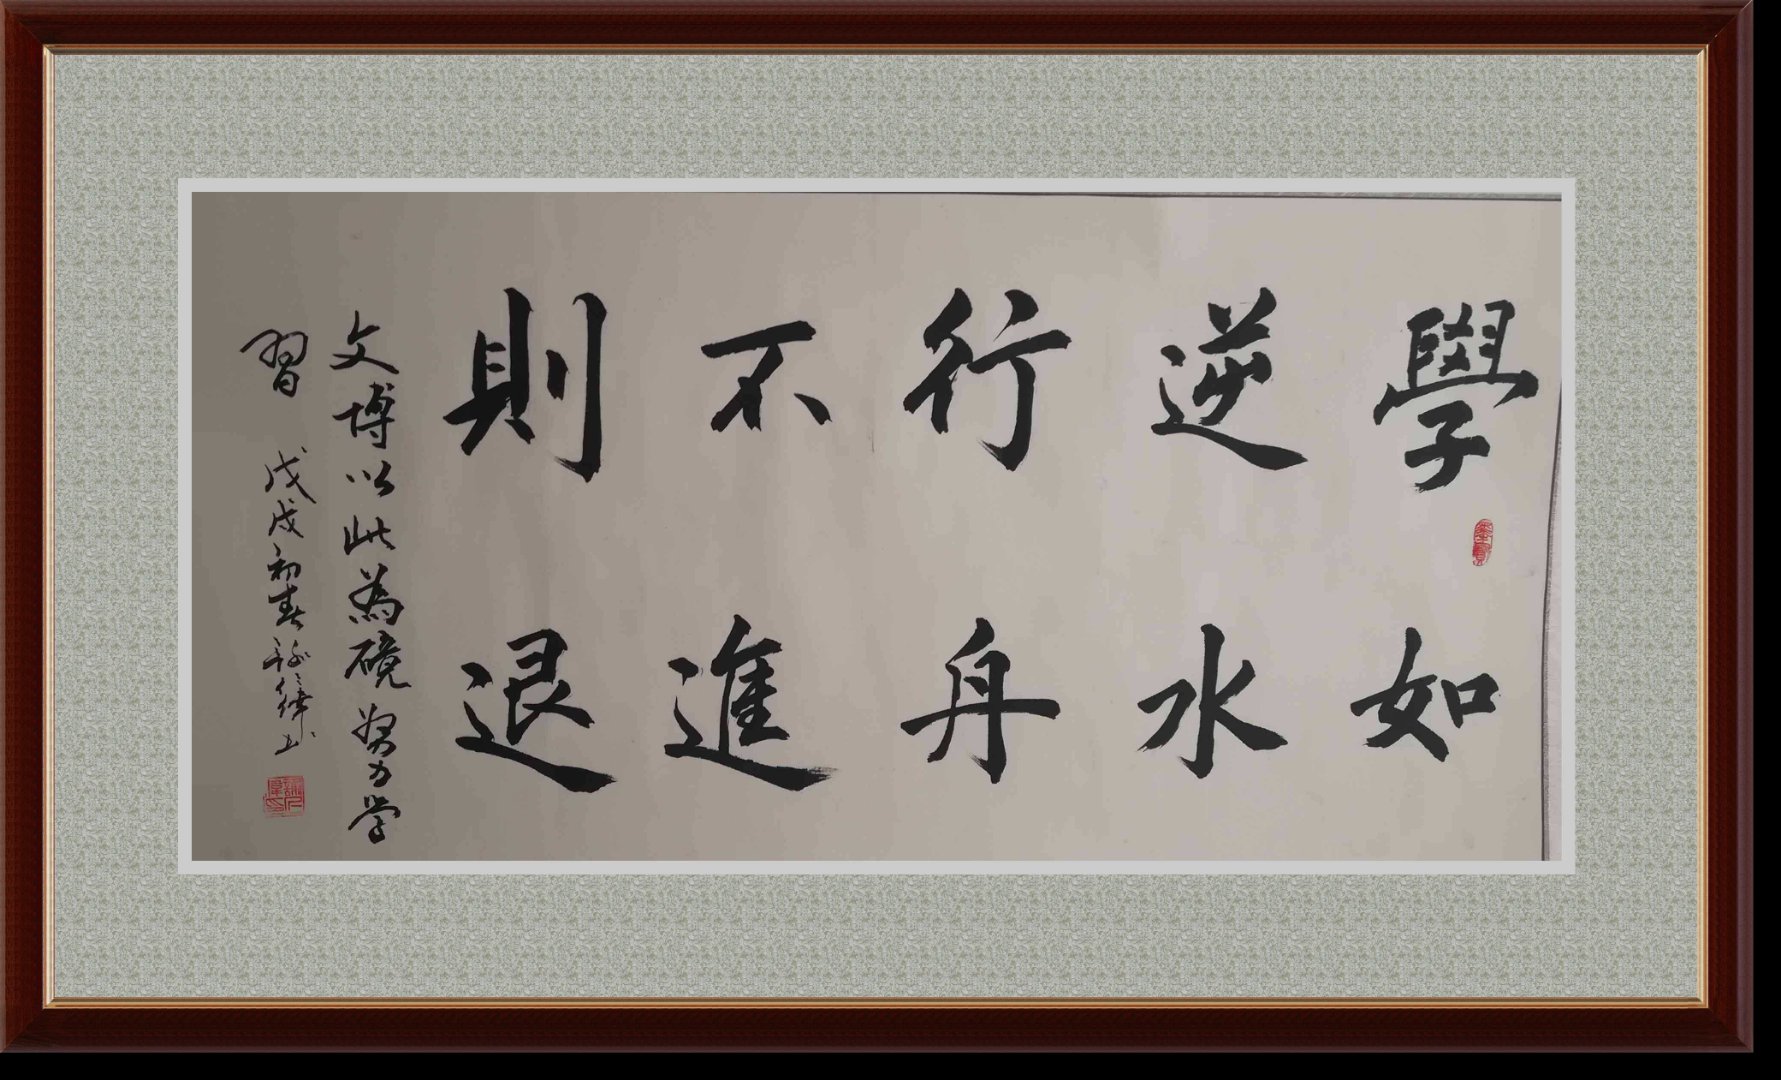 學如
逆水
行舟
不進
則退
文博以此為鏡努力学
習 戊戌初春